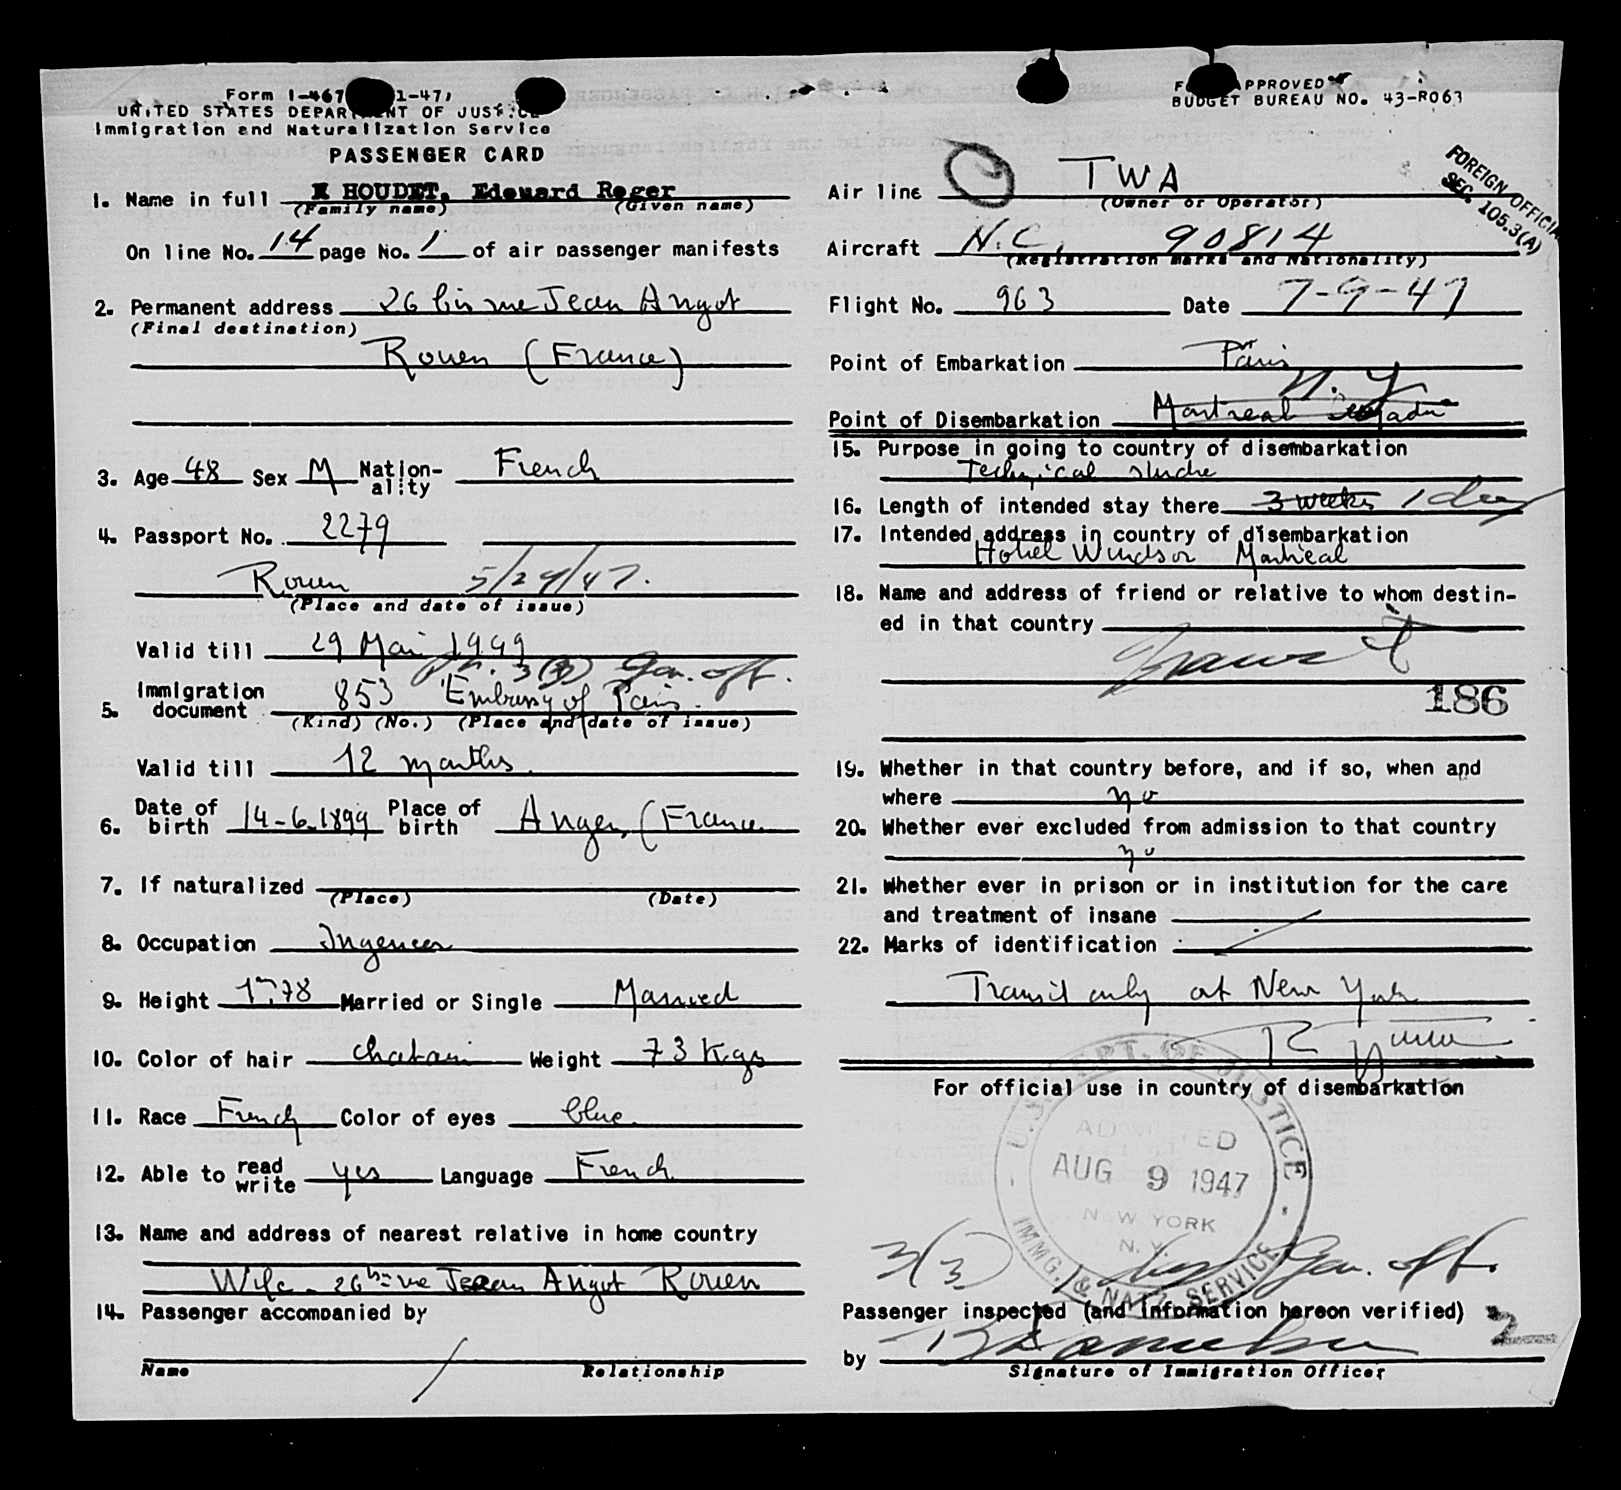 Form I-467 1-47)
UNITED STATES DEPARTMENT OF JUSTICE
Immigration and Naturalization Service
PASSENGER CARD
1. Name in full HOUDET, Edouard Roger
(Family name) (Given name)
On line No. 14 page No. 1 of air passenger manifests
2. Permanent address 26 bis rue Jean Angot
(Final destination)
Rouen (France)
3. Age 48 Sex M Nation-ality French
4. Passport No. 2279
Rouen 5/29/47.
(Place and date of issue)
Valid till 29 Mai 1949
3(3) Gov. off.
5. Immigration document 853 Embassy of Paris.
(Kind) (No.) (Place and date of issue)
Valid till 12 months.
6. Date of birth 14-6-1899 Place of birth Angers (France
7. If naturalized
(Place) (Date)
8. Occupation Ingeneer
9. Height 1m78 Married or Single Married
10. Color of hair chatain Weight 73 Kgs
11. Race French Color of eyes blue.
12. Able to read write yes Language French
13. Name and address of nearest relative in home country
Wife - 26 bis rue Jean Angot Rouen
14. Passenger accompanied by
Name Relationship
APPROVED
BUDGET BUREAU NO. 43-R063
FOREIGN OFFICIAL
SEC. 105.3(A)
Air line TWA
(Owner or Operator)
Aircraft N.C. 90814
(Registration marks and Nationality)
Flight No. 963 Date 7-9-47
Point of Embarkation Paris
N.Y.
Point of Disembarkation Montreal
15. Purpose in going to country of disembarkation
Technical studie
16. Length of intended stay there 3 weeks 1 day
17. Intended address in country of disembarkation
Hotel Windsor Montreal
18. Name and address of friend or relative to whom destin-
ed in that country
Transit
186
19. Whether in that country before, and if so, when and
where no
20. Whether ever excluded from admission to that country
no
21. Whether ever in prison or in institution for the care
and treatment of insane
22. Marks of identification
Transit only at New York
For official use in country of disembarkation
U.S. DEPT. OF JUSTICE
ADMITTED
AUG 9 1947
NEW YORK
N.Y.
IMMG. & NATZ. SERVICE
3(3) 1 day Gov. off.
Passenger inspected (and information hereon verified) 2
by
Signature of Immigration Officer